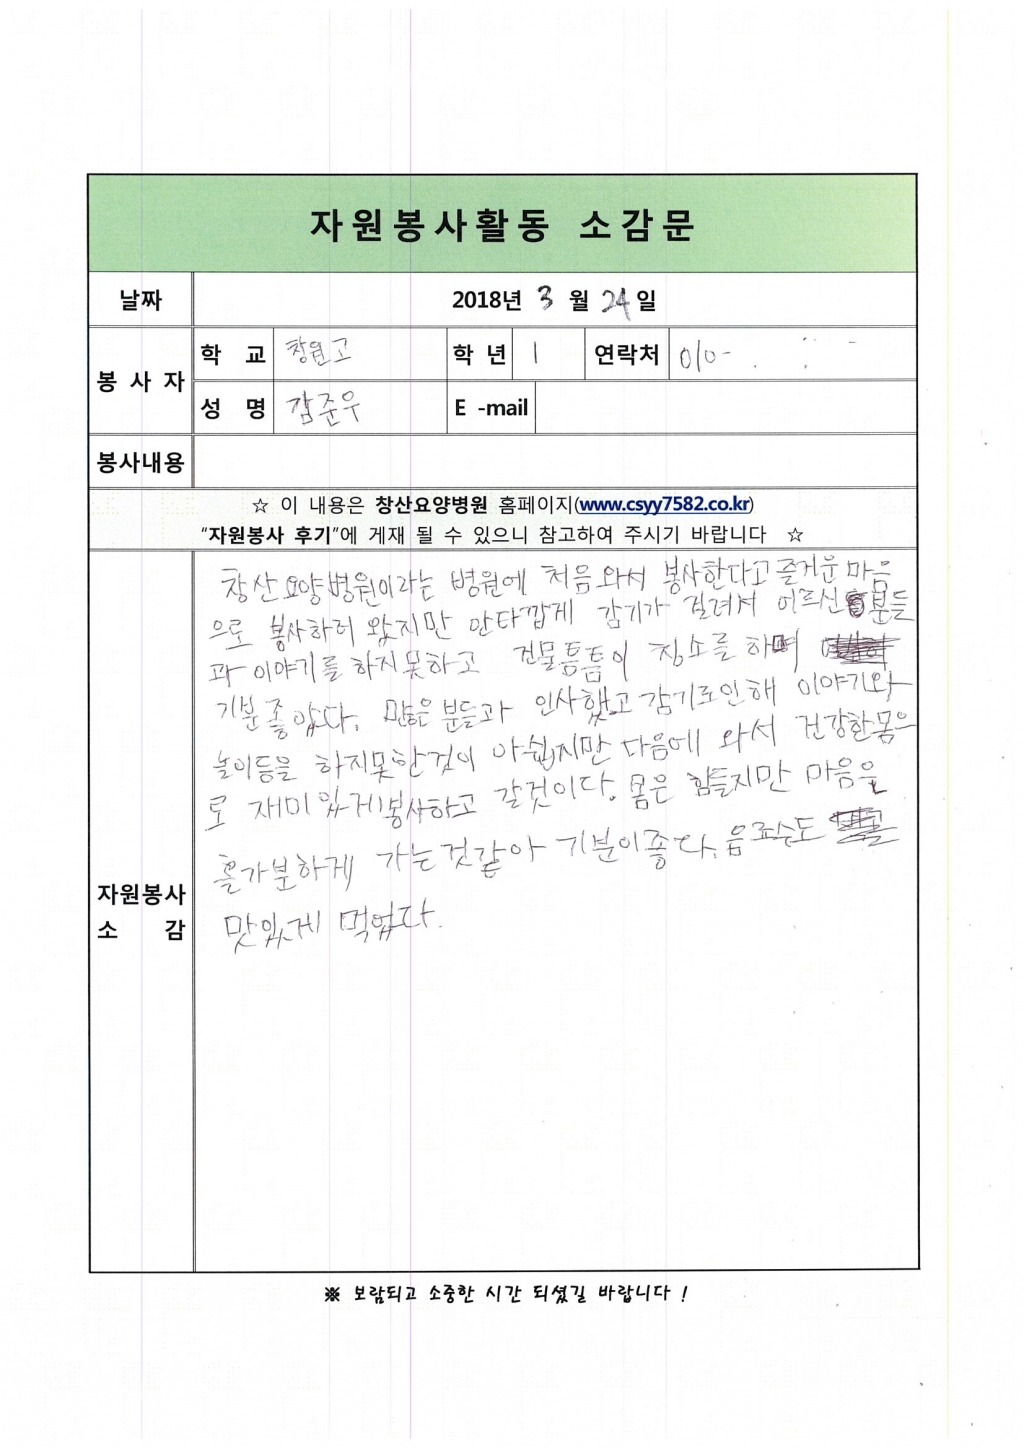 자원봉사활동 소감문
날짜 2018년 3 월 24일
봉사자 학 교 창원고 학 년 1 연락처 010-
성 명 감준우 E -mail
봉사내용
☆ 이 내용은 창산요양병원 홈페이지(www.csyy7582.co.kr)
“자원봉사 후기”에 게재 될 수 있으니 참고하여 주시기 바랍니다 ☆
자원봉사
소 감
창산요양병원이라는 병원에 처음와서 봉사한다고 즐거운 마음
으로 봉사하러 왔지만 안타깝게 감기가 걸려서 어르신 분들
과 이야기를 하지못하고 건물틈틈이 청소를 하며
기분좋았다. 많은 분들과 인사했고 감기로인해 이야기와
놀이등을 하지못한것이 아쉽지만 다음에 와서 건강한몸으
로 재미있게봉사하고 갈것이다. 몸은 힘들지만 마음은
홀가분하게 가는것같아 기분이좋다. 음료수도
맛있게 먹었다.
※ 보람되고 소중한 시간 되셨길 바랍니다 !